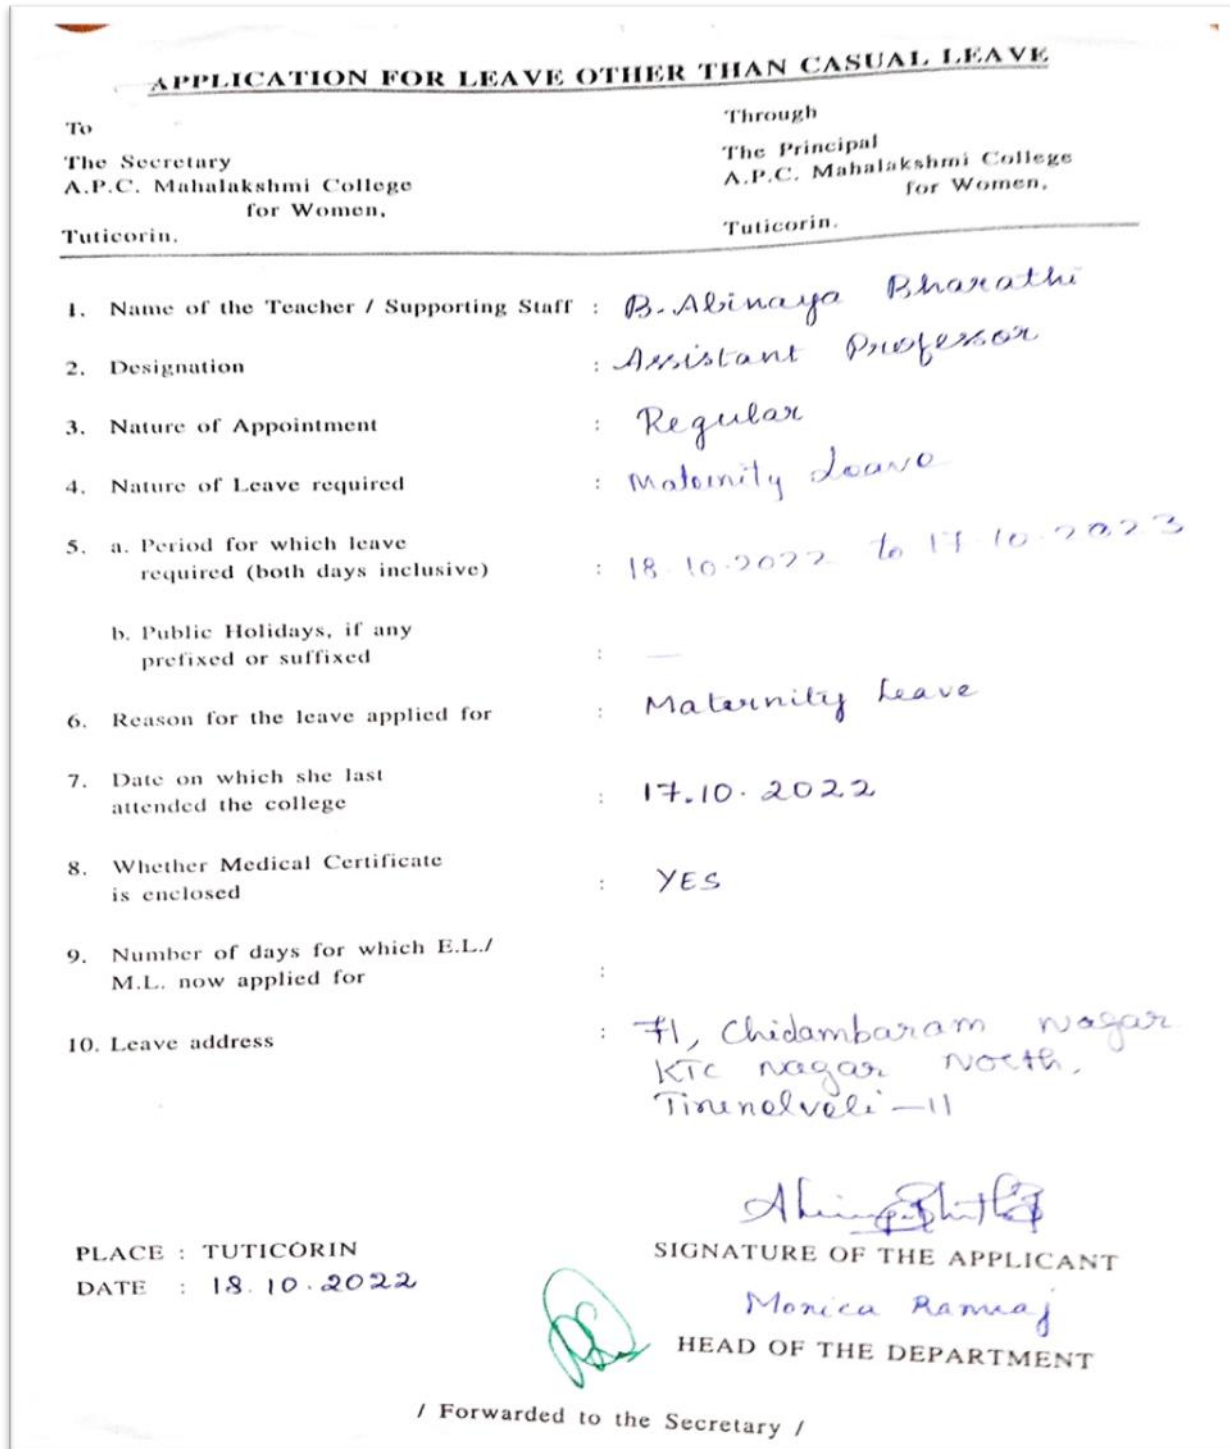 APPLICATION FOR LEAVE OTHER THAN CASUAL LEAVE
To
The Secretary
A.P.C. Mahalakshmi College
for Women,
Tuticorin.
Through
The Principal
A.P.C. Mahalakshmi College
for Women,
Tuticorin.
1. Name of the Teacher / Supporting Staff : B. Abinaya Bharathi
2. Designation : Assistant Professor
3. Nature of Appointment : Regular
4. Nature of Leave required : Maternity Leave
5. a. Period for which leave
required (both days inclusive) : 18.10.2022 to 17.10.2023
b. Public Holidays, if any
prefixed or suffixed : —
6. Reason for the leave applied for : Maternity Leave
7. Date on which she last
attended the college : 17.10.2022
8. Whether Medical Certificate
is enclosed : YES
9. Number of days for which E.L./
M.L. now applied for :
10. Leave address : 71, Chidambaram Nagar
KTC Nagar North,
Tirunelveli - 11
PLACE : TUTICORIN
DATE : 18.10.2022
SIGNATURE OF THE APPLICANT
Monica Ramraj
HEAD OF THE DEPARTMENT
/ Forwarded to the Secretary /